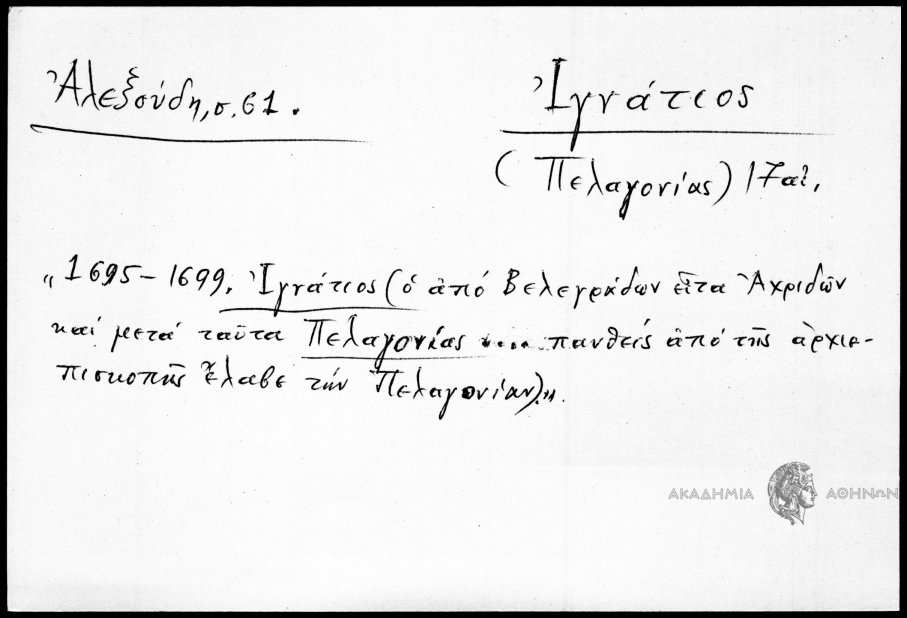 Ἀλεξούδη, σ. 61.
Ἰγνάτιος
(Πελαγονίας) 17 αἰ.
„1695 – 1699. Ἰγνάτιος (ὁ ἀπό Βελεγράδων εἶτα Ἀχριδῶν
καί μετά ταῦτα Πελαγονίας .... πανθείς ἀπό τῆς ἀρχιε-
πισκοπῆς ἔλαβε τήν Πελαγονίαν)."
ΑΚΑΔΗΜΙΑ ΑΘΗΝΩΝ